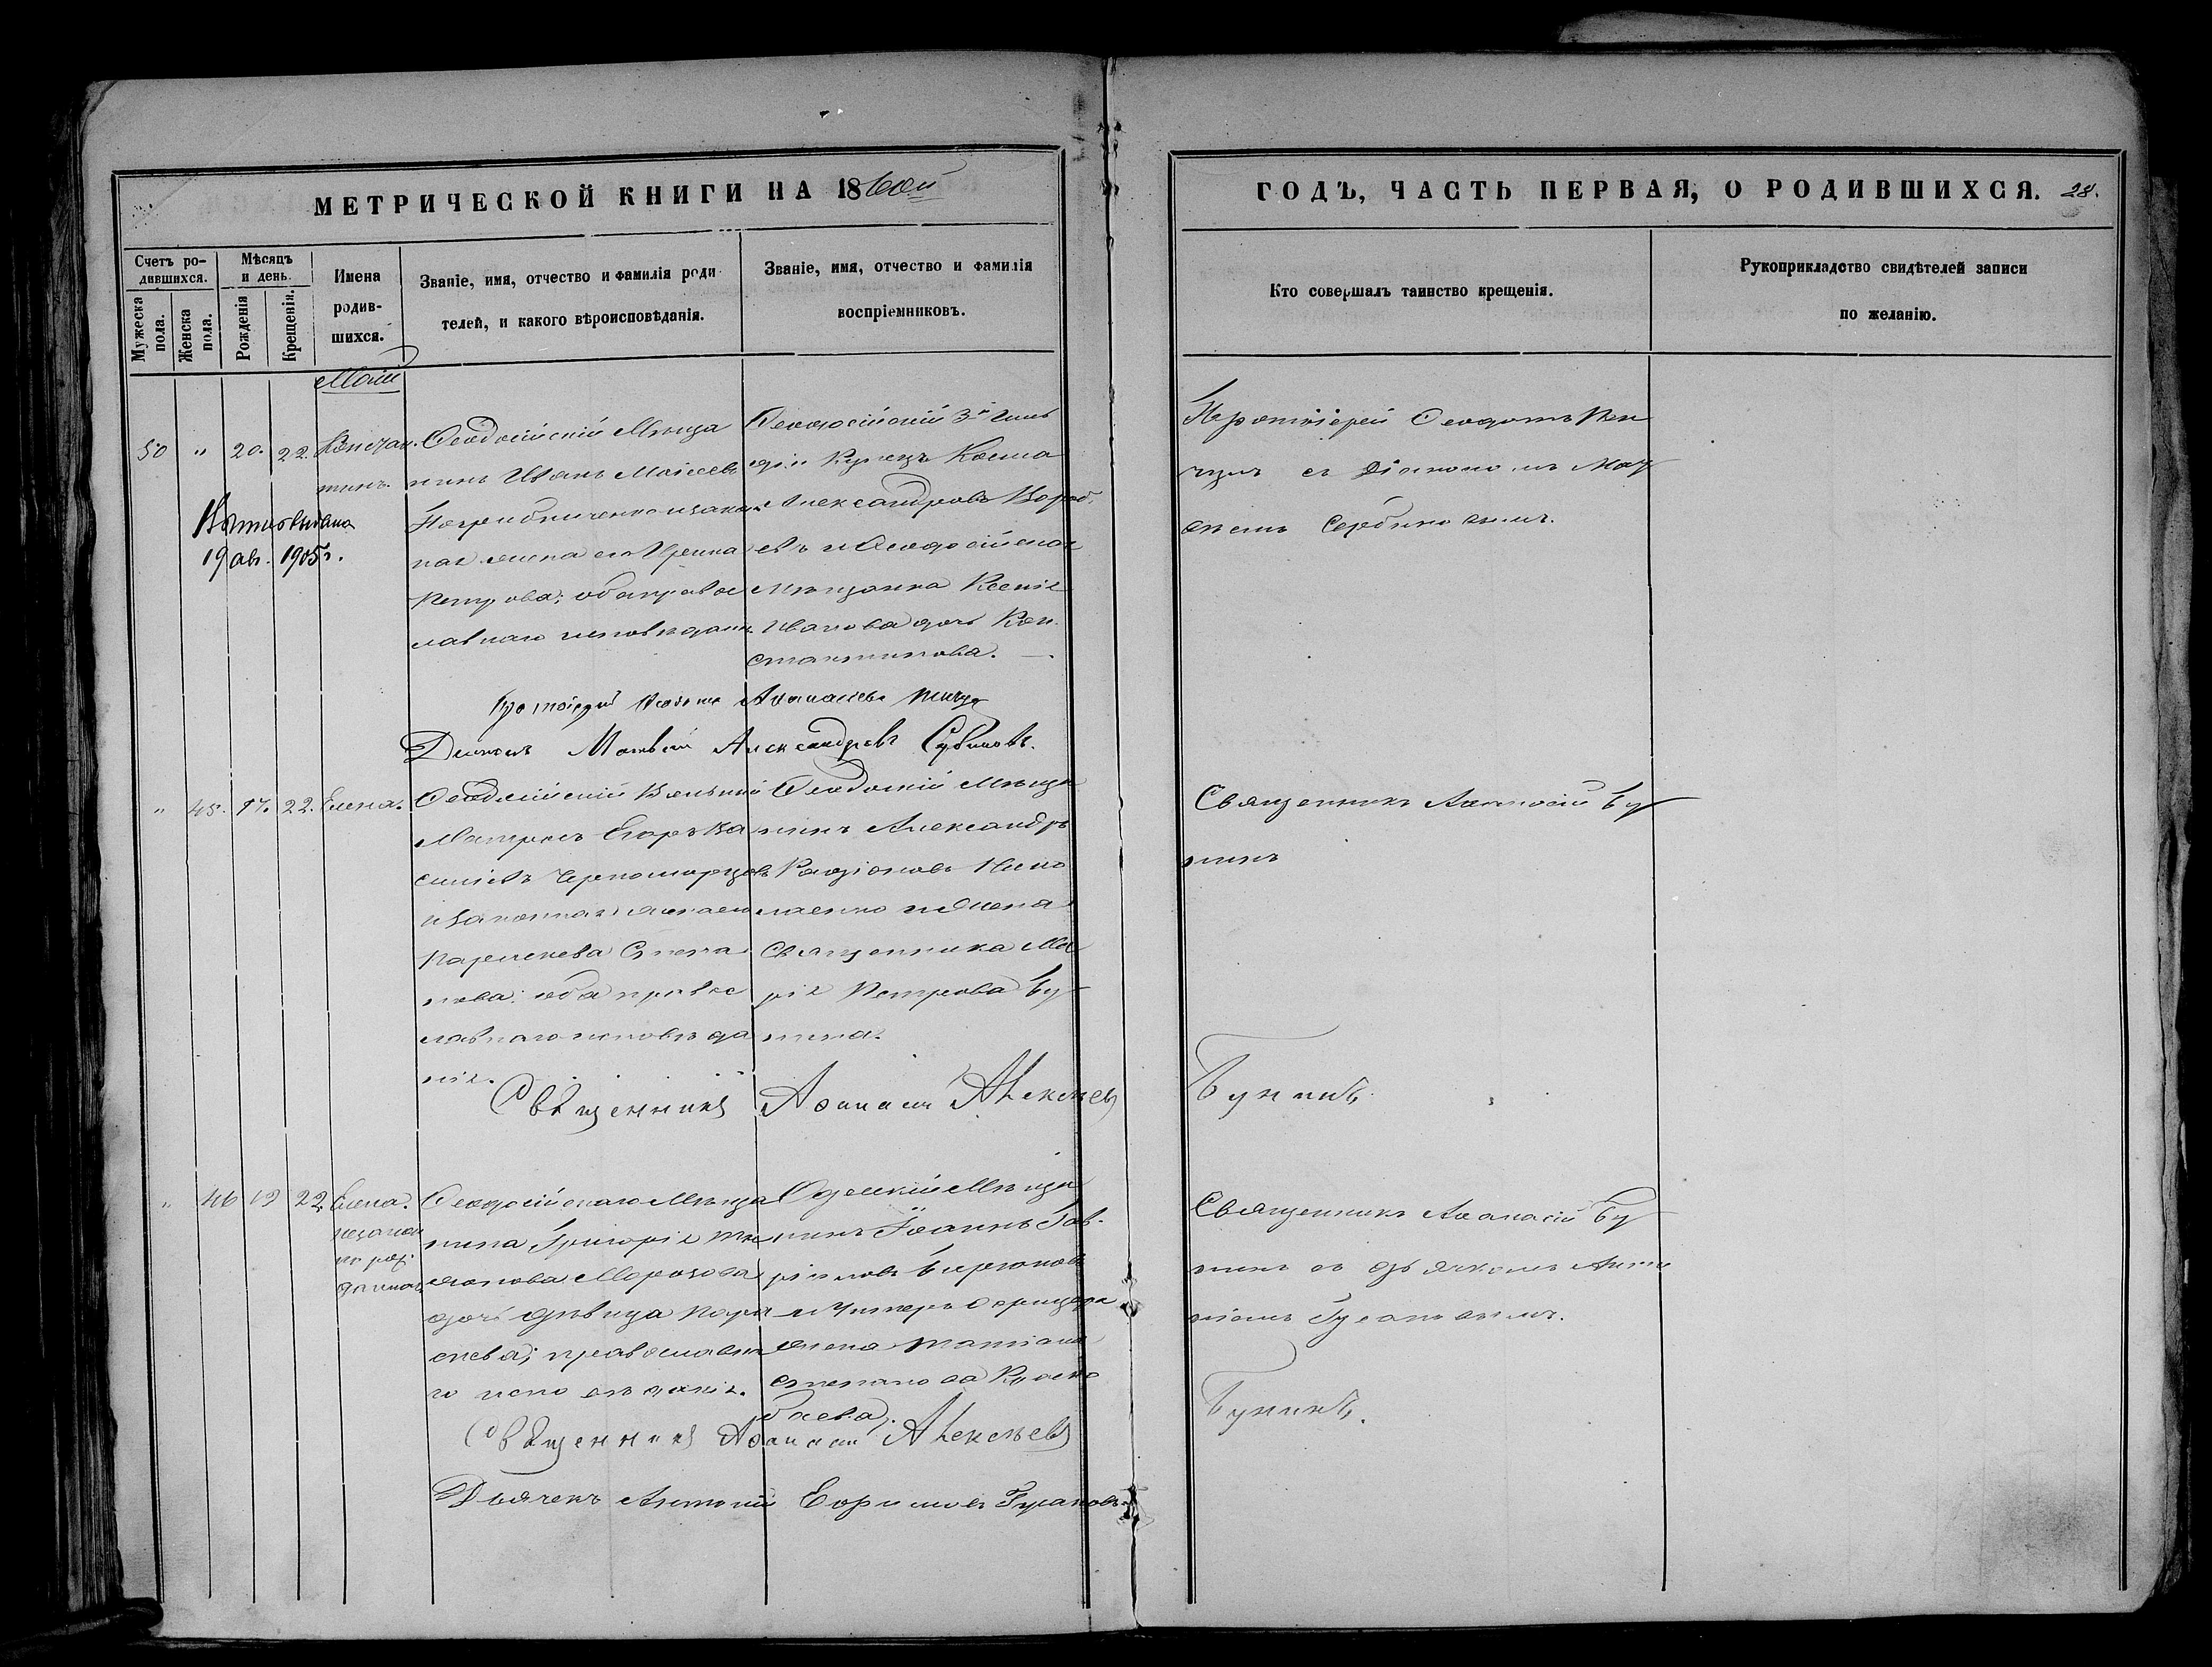 МЕТРИЧЕСКОЙ КНИГИ НА 1860й
ГОДЪ, ЧАСТЬ ПЕРВАЯ, О РОДИВШИХСЯ. 28.
Счетъ ро-
дившихся.
Мужеска
пола.
Женска
пола.
Мѣсяцъ
и день.
Рожденія
Крещенія.
Имена
родив-
шихся.
Званіе, имя, отчество и фамилія роди
телей, и какого вѣроисповѣданія.
Званіе, имя, отчество и фамилія
воспріемниковъ.
Кто совершалъ таинство крещенія.
Рукоприкладство свидѣтелей записи
по желанію.
Май
50 " 20. 22. Констан.
тинъ.
19 авг. 1905 г.
Ѳеодосійскій Мѣща
нинъ Иванъ Моисеевъ
и закон
ная жена его Ирина
Петрова; оба правос
лавнаго исповѣдан.
Ѳеодосійскій 3й Гиль
діи Купецъ Косма
Александровъ
евъ и Ѳеодосійская
Мѣщанка Ксенія
Иванова дочь Кон.
стантинова.
Протоіерей Ѳеодотъ
съ Діакономъ Мат
ѳеемъ
Протоіерей Аѳанасіевъ
Діаконъ Матвей Александровъ
" 45. 17. 22. Елена.
Ѳеодосійскій Вольный
Матросъ Егоръ Ва
сильевъ Черноморцовъ
и законная жена его
Параскева Степа
нова: оба правос
лавнаго исповѣда
нія.
Ѳеодосійскій Мѣща
нинъ Александръ
Нико
лаенко и Жена
Священника Ма
рія Петрова Бу
нина.
Священникъ Аѳанасій Бу
нинъ
Священникъ Аѳанасій Алексѣевъ
Бунинъ
" 46 19 22. Елена.
незакон
но рож
денная
Ѳеодосійскаго Мѣща
нина Григорія Ти
Морозова
дочь дѣвица Пара
скева; православна
го исповѣданія.
Одесскій Мѣща
нинъ Іоаннъ Гав-
риловъ
и Унтеръ Офицера
жена Татіана
Степанова
баева.
Священникъ Аѳанасій Бу
нинъ съ дьячкомъ Анто
ніемъ
Священникъ Аѳанасій Алексѣевъ
Бунинъ.
Дьячекъ Антоній Ефимовъ